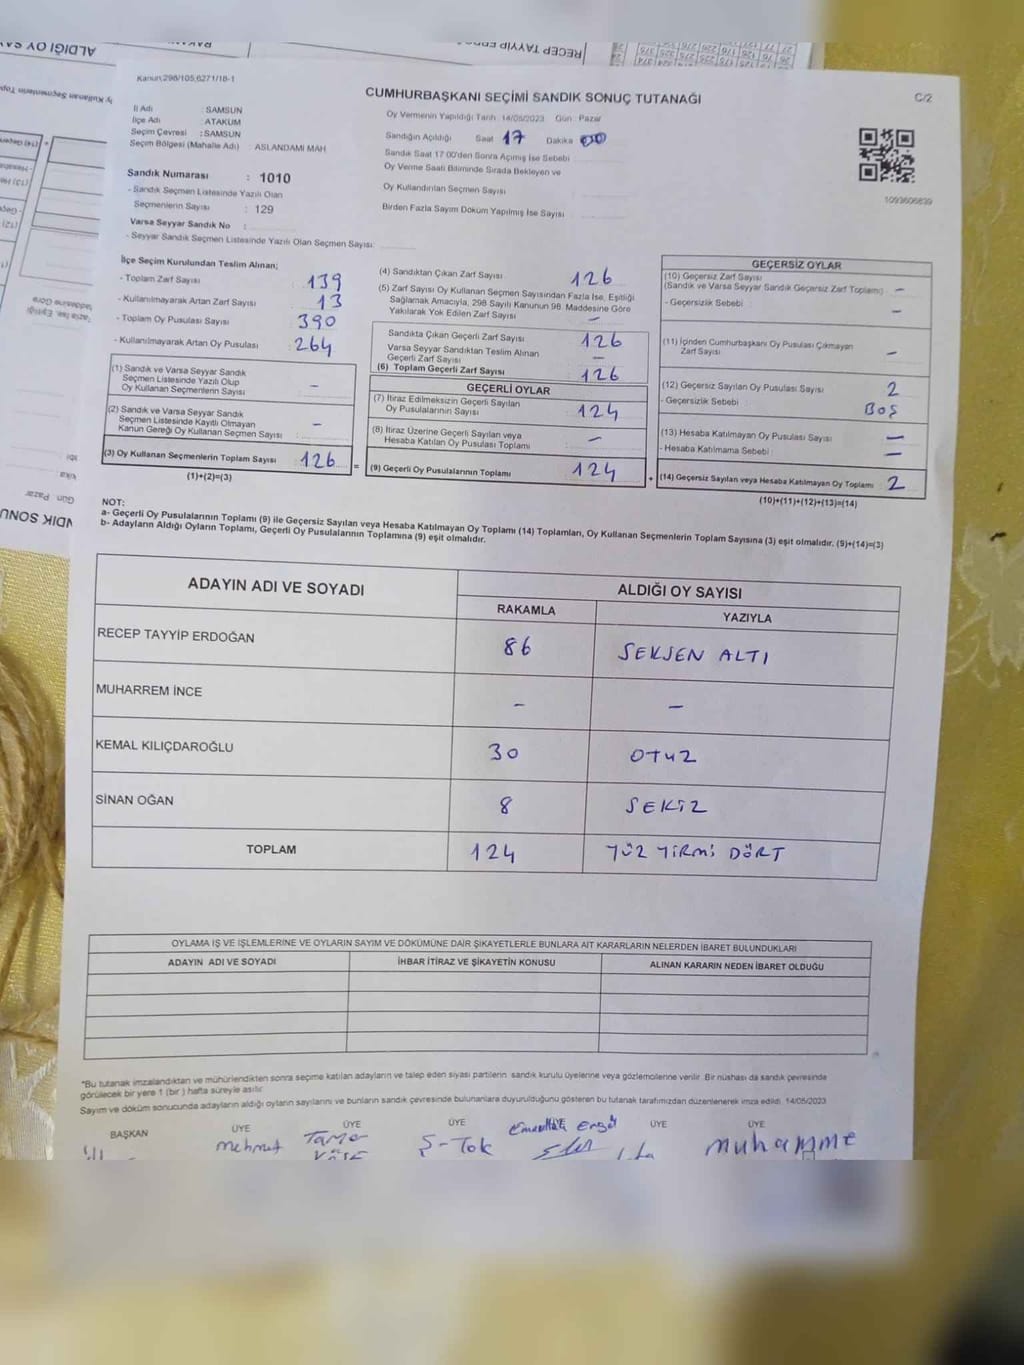 Kanun,298/105,6271/18-1
C/2
CUMHURBAŞKANI SEÇİMİ SANDIK SONUÇ TUTANAĞI
İl Adı : SAMSUN
İlçe Adı : ATAKUM
Seçim Çevresi : SAMSUN
Seçim Bölgesi (Mahalle Adı) : ASLANDAMI MAH
Oy Vermenin Yapıldığı Tarih 14/05/2023 Gün : Pazar
Sandığın Açıldığı Saat 17 Dakika
Sandık Saat 17.00'den Sonra Açılmış İse Sebebi
Oy Verme Saati Bitiminde Sırada Bekleyen ve
Oy Kullandırılan Seçmen Sayısı
Birden Fazla Sayım Döküm Yapılmış İse Sayısı
1093606839
Sandık Numarası : 1010
- Sandık Seçmen Listesinde Yazılı Olan
Seçmenlerin Sayısı : 129
Varsa Seyyar Sandık No :
- Seyyar Sandık Seçmen Listesinde Yazılı Olan Seçmen Sayısı:
İlçe Seçim Kurulundan Teslim Alınan;
- Toplam Zarf Sayısı : 139
- Kullanılmayarak Artan Zarf Sayısı : 13
- Toplam Oy Pusulası Sayısı : 390
- Kullanılmayarak Artan Oy Pusulası : 264
(1) Sandık ve Varsa Seyyar Sandık
Seçmen Listesinde Yazılı Olup
Oy Kullanan Seçmenlerin Sayısı : -
(2) Sandık ve Varsa Seyyar Sandık
Seçmen Listesinde Kayıtlı Olmayan
Kanun Gereği Oy Kullanan Seçmen Sayısı : -
(3) Oy Kullanan Seçmenlerin Toplam Sayısı : 126
(1)+(2)=(3)
(4) Sandıktan Çıkan Zarf Sayısı : 126
(5) Zarf Sayısı Oy Kullanan Seçmen Sayısından Fazla İse, Eşitliği
Sağlamak Amacıyla, 298 Sayılı Kanunun 98. Maddesine Göre
Yakılarak Yok Edilen Zarf Sayısı : -
Sandıkta Çıkan Geçerli Zarf Sayısı : 126
Varsa Seyyar Sandıktan Teslim Alınan
Geçerli Zarf Sayısı : -
(6) Toplam Geçerli Zarf Sayısı : 126
GEÇERLİ OYLAR
(7) İtiraz Edilmeksizin Geçerli Sayılan
Oy Pusulalarının Sayısı : 124
(8) İtiraz Üzerine Geçerli Sayılan veya
Hesaba Katılan Oy Pusulası Toplamı : -
= (9) Geçerli Oy Pusulalarının Toplamı : 124
GEÇERSİZ OYLAR
(10) Geçersiz Zarf Sayısı
(Sandık ve Varsa Seyyar Sandık Geçersiz Zarf Toplamı) : -
- Geçersizlik Sebebi : -
(11) İçinden Cumhurbaşkanı Oy Pusulası Çıkmayan
Zarf Sayısı : -
(12) Geçersiz Sayılan Oy Pusulası Sayısı : 2
- Geçersizlik Sebebi : BOŞ
(13) Hesaba Katılmayan Oy Pusulası Sayısı : -
- Hesaba Katılmama Sebebi : -
+ (14) Geçersiz Sayılan veya Hesaba Katılmayan Oy Toplamı : 2
(10)+(11)+(12)+(13)=(14)
NOT:
a- Geçerli Oy Pusulalarının Toplamı (9) ile Geçersiz Sayılan veya Hesaba Katılmayan Oy Toplamı (14) Toplamları, Oy Kullanan Seçmenlerin Toplam Sayısına (3) eşit olmalıdır. (9)+(14)=(3)
b- Adayların Aldığı Oyların Toplamı, Geçerli Oy Pusulalarının Toplamına (9) eşit olmalıdır.
ADAYIN ADI VE SOYADI ALDIĞI OY SAYISI
RAKAMLA YAZIYLA
RECEP TAYYİP ERDOĞAN 86 SEKSEN ALTI
MUHARREM İNCE - -
KEMAL KILIÇDAROĞLU 30 OTUZ
SİNAN OĞAN 8 SEKİZ
TOPLAM 124 YÜZ YİRMİ DÖRT
OYLAMA İŞ VE İŞLEMLERİNE VE OYLARIN SAYIM VE DÖKÜMÜNE DAİR ŞİKAYETLERLE BUNLARA AİT KARARLARIN NELERDEN İBARET BULUNDUKLARI
ADAYIN ADI VE SOYADI İHBAR İTİRAZ VE ŞİKAYETİN KONUSU ALINAN KARARIN NEDEN İBARET OLDUĞU
*Bu tutanak imzalandıktan ve mühürlendikten sonra seçime katılan adayların ve talep eden siyasi partilerin sandık kurulu üyelerine veya gözlemcilerine verilir. Bir nüshası da sandık çevresinde
görülecek bir yere 1 (bir) hafta süreyle asılır.
Sayım ve döküm sonucunda adayların aldığı oyların sayılarını ve bunların sandık çevresinde bulunanlara duyurulduğunu gösteren bu tutanak tarafımızdan düzenlenerek imza edildi. 14/05/2023
BAŞKAN ÜYE ÜYE ÜYE ÜYE ÜYE ÜYE
mehmet Tamer Ş-Tok muhamme